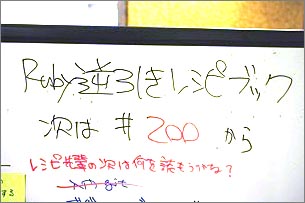 Ruby逆引きレシピブック
次は #200 から
レシピ先輩の次は何を読もうかな?
する